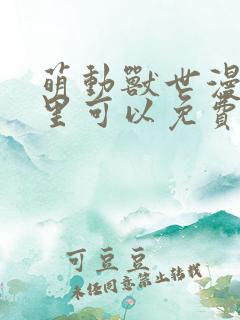 萌動獸世漫
里可以免費
可豆豆
未经同意禁止转载